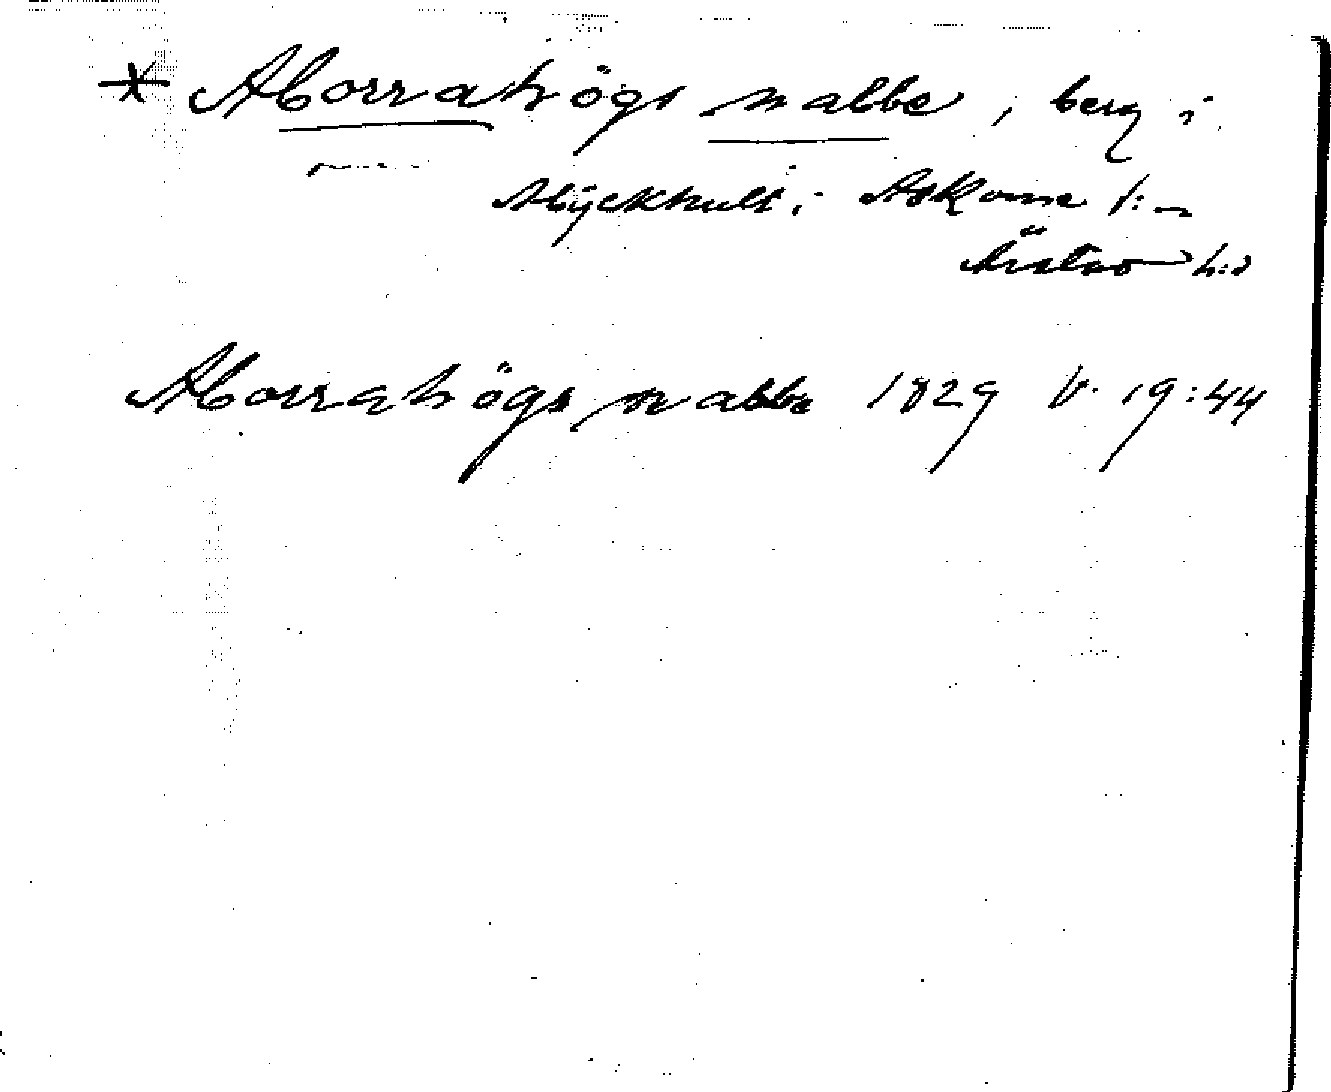 * Aborrahögs nabbe, berg i
Myckhult i Askome s:n
Årstad h:d
Aborrahögs nabbe 1829 V. 19:44